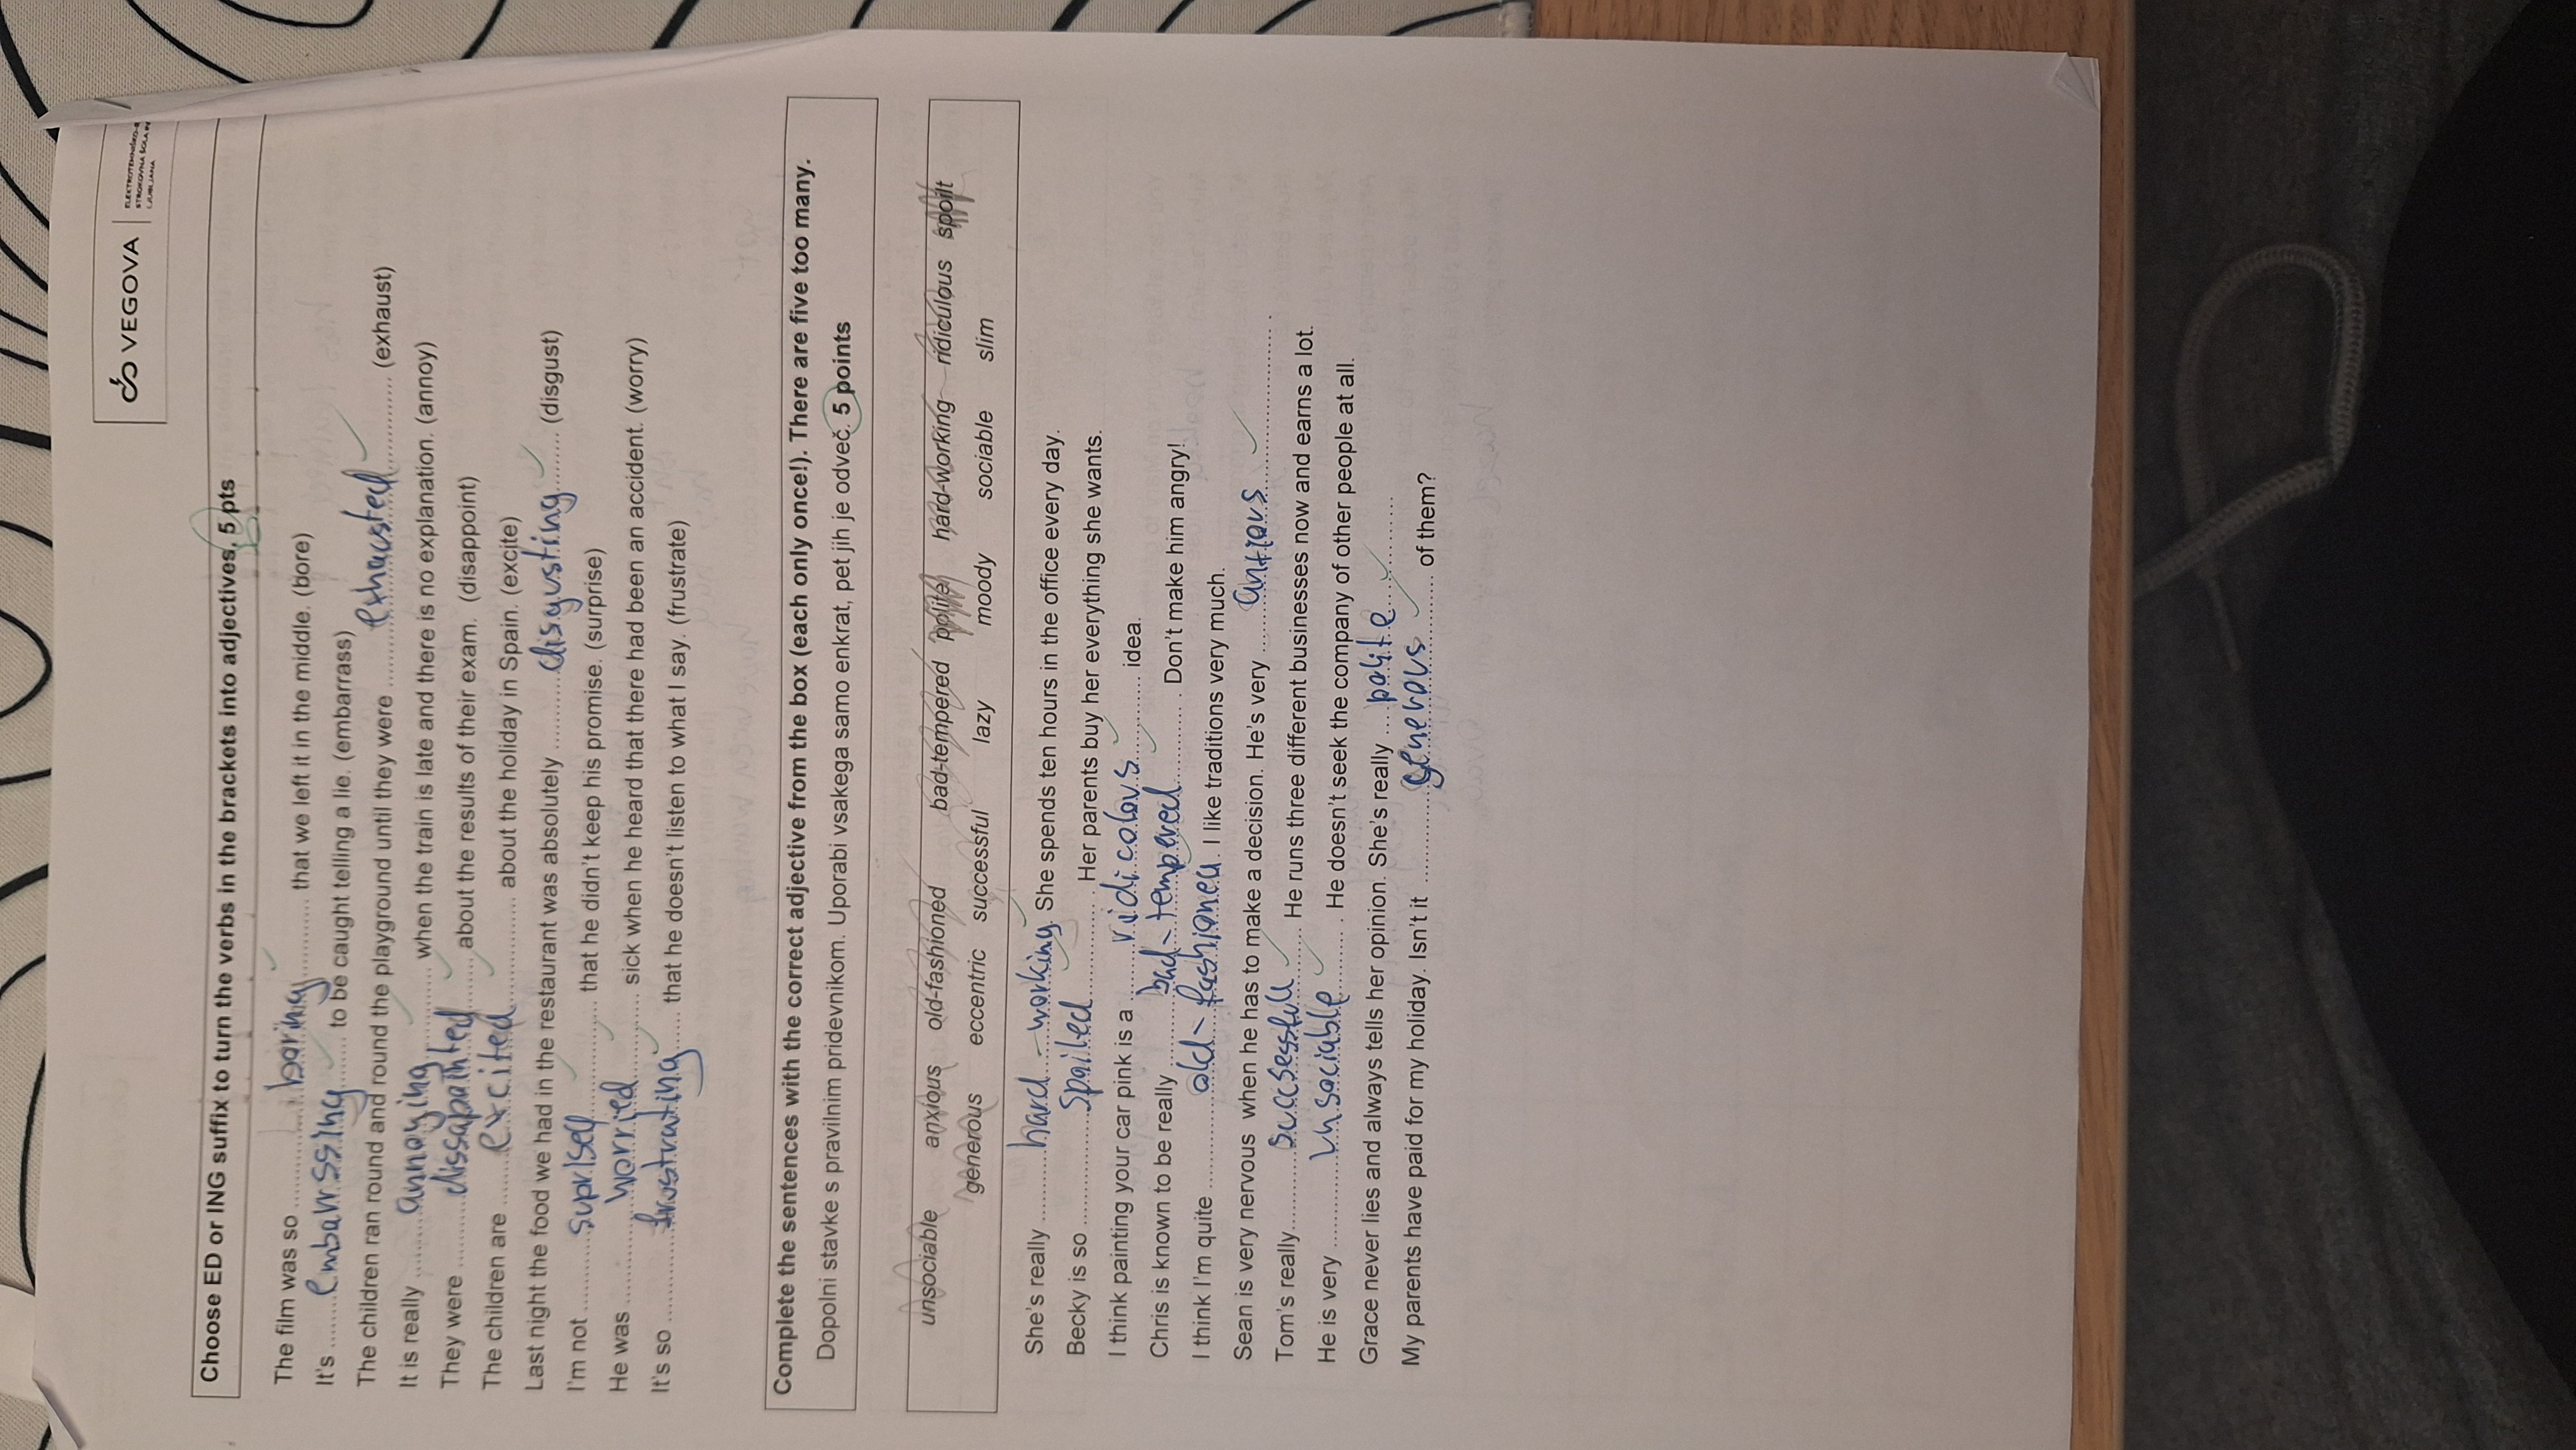 VEGOVA
ELEKTROTEHNIŠKO-
STROKOVNA ŠOLA IN
LJUBLJANA
Choose ED or ING suffix to turn the verbs in the brackets into adjectives, 5 pts
The film was so .......... boring .......... that we left it in the middle. (bore)
It's ........ embarrssing ........ to be caught telling a lie. (embarrass)
The children ran round and round the playground until they were .......... exhausted .......... (exhaust)
It is really .......... annoying .......... when the train is late and there is no explanation. (annoy)
They were .......... dissapointed ........ about the results of their exam. (disappoint)
The children are ........ excited .......... about the holiday in Spain. (excite)
Last night the food we had in the restaurant was absolutely .......... disgusting ........ (disgust)
I'm not .......... suprised .......... that he didn't keep his promise. (surprise)
He was .......... worried .......... sick when he heard that there had been an accident. (worry)
It's so .......... frustrating ...... that he doesn't listen to what I say. (frustrate)
Complete the sentences with the correct adjective from the box (each only once!). There are five too many.
Dopolni stavke s pravilnim pridevnikom. Uporabi vsakega samo enkrat, pet jih je odveč. 5 points
unsociable anxious old-fashioned bad-tempered polite hard-working ridiculous spoilt
generous eccentric successful lazy moody sociable slim
She's really .......... hard-working. She spends ten hours in the office every day.
Becky is so .......... Spoiled .......... . Her parents buy her everything she wants.
I think painting your car pink is a ........ ridicolous .......... idea.
Chris is known to be really .......... bad-tempered .......... . Don't make him angry!
I think I'm quite .......... old-fashioned. I like traditions very much.
Sean is very nervous when he has to make a decision. He's very ........ anxious .......... .
Tom's really.......... succsessfull ........ He runs three different businesses now and earns a lot.
He is very .......... Unsociable .......... . He doesn't seek the company of other people at all.
Grace never lies and always tells her opinion. She's really .... polite ..........
My parents have paid for my holiday. Isn't it .......... generous .......... of them?